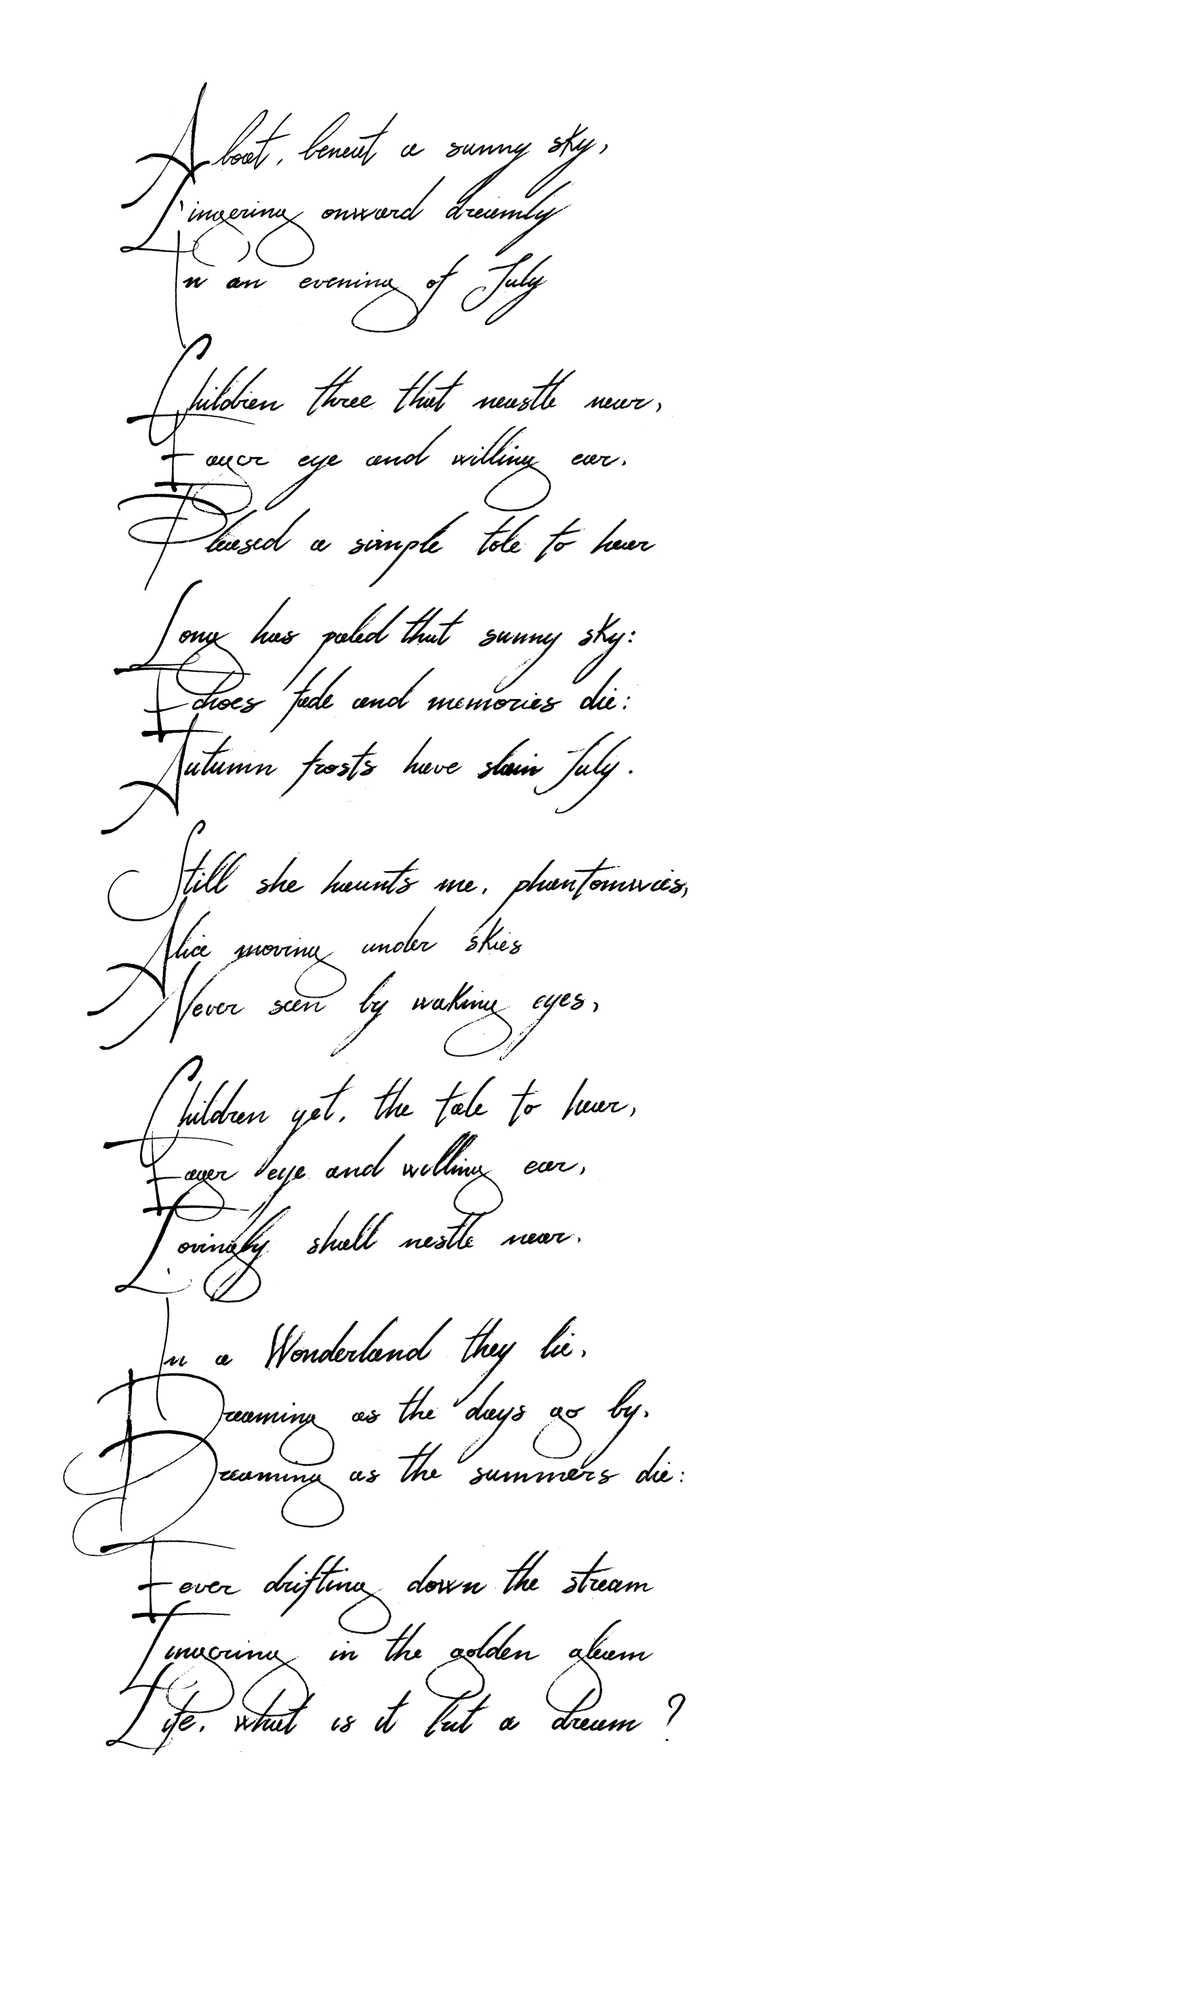 A boat, beneat a sunny sky,
Lingering onward dreamily
In an evening of July
Children three that neastle near,
Eager eye and willing ear.
Pleased a simple tale to hear
Long has paled that sunny sky:
Echoes fade and memories die:
Autumn frosts have slain July.
Still she haunts me, phantomwies,
Alice moving under skies
Never seen by waking eyes,
Children yet, the tale to hear,
Eager eye and willing ear,
Lovingly shall nestle near.
In a Wonderland they lie,
Dreaming as the days go by,
Dreaming as the summers die:
Eever drifting down the stream
Lingering in the golden gleam
Life, what is it but a dream?